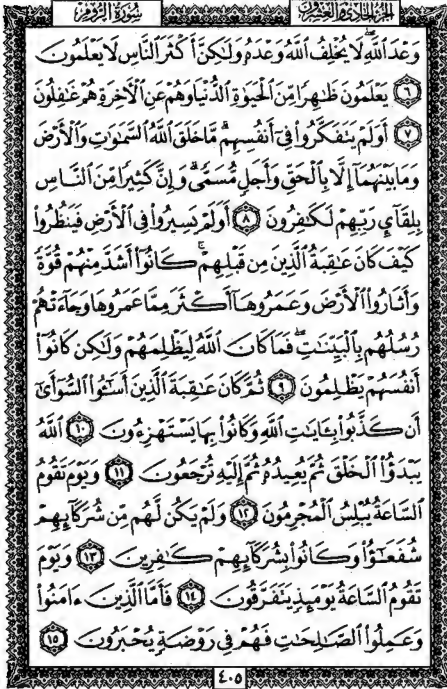 الجزء الحادي والعشرون
سورة الروم
وَعْدَ ٱللَّهِ لَا يُخْلِفُ ٱللَّهُ وَعْدَهُۥ وَلَٰكِنَّ أَكْثَرَ ٱلنَّاسِ لَا يَعْلَمُونَ
٦ يَعْلَمُونَ ظَٰهِرًا مِّنَ ٱلْحَيَوٰةِ ٱلدُّنْيَا وَهُمْ عَنِ ٱلْءَاخِرَةِ هُمْ غَٰفِلُونَ
٧ أَوَلَمْ يَتَفَكَّرُوا۟ فِىٓ أَنفُسِهِم ۗ مَّا خَلَقَ ٱللَّهُ ٱلسَّمَٰوَٰتِ وَٱلْأَرْضَ
وَمَا بَيْنَهُمَآ إِلَّا بِٱلْحَقِّ وَأَجَلٍ مُّسَمًّى ۗ وَإِنَّ كَثِيرًا مِّنَ ٱلنَّاسِ
بِلِقَآئِ رَبِّهِمْ لَكَٰفِرُونَ ٨ أَوَلَمْ يَسِيرُوا۟ فِى ٱلْأَرْضِ فَيَنظُرُوا۟
كَيْفَ كَانَ عَٰقِبَةُ ٱلَّذِينَ مِن قَبْلِهِمْ ۚ كَانُوٓا۟ أَشَدَّ مِنْهُمْ قُوَّةً
وَأَثَارُوا۟ ٱلْأَرْضَ وَعَمَرُوهَآ أَكْثَرَ مِمَّا عَمَرُوهَا وَجَآءَتْهُمْ
رُسُلُهُم بِٱلْبَيِّنَٰتِ ۖ فَمَا كَانَ ٱللَّهُ لِيَظْلِمَهُمْ وَلَٰكِن كَانُوٓا۟
أَنفُسَهُمْ يَظْلِمُونَ ٩ ثُمَّ كَانَ عَٰقِبَةَ ٱلَّذِينَ أَسَٰٓـُٔوا۟ ٱلسُّوٓأَىٰٓ
أَن كَذَّبُوا۟ بِـَٔايَٰتِ ٱللَّهِ وَكَانُوا۟ بِهَا يَسْتَهْزِءُونَ ١٠ ٱللَّهُ
يَبْدَؤُا۟ ٱلْخَلْقَ ثُمَّ يُعِيدُهُۥ ثُمَّ إِلَيْهِ تُرْجَعُونَ ١١ وَيَوْمَ تَقُومُ
ٱلسَّاعَةُ يُبْلِسُ ٱلْمُجْرِمُونَ ١٢ وَلَمْ يَكُن لَّهُم مِّن شُرَكَآئِهِمْ
شُفَعَٰٓؤُا۟ وَكَانُوا۟ بِشُرَكَآئِهِمْ كَٰفِرِينَ ١٣ وَيَوْمَ
تَقُومُ ٱلسَّاعَةُ يَوْمَئِذٍ يَتَفَرَّقُونَ ١٤ فَأَمَّا ٱلَّذِينَ ءَامَنُوا۟
وَعَمِلُوا۟ ٱلصَّٰلِحَٰتِ فَهُمْ فِى رَوْضَةٍ يُحْبَرُونَ ١٥
٤٠٥